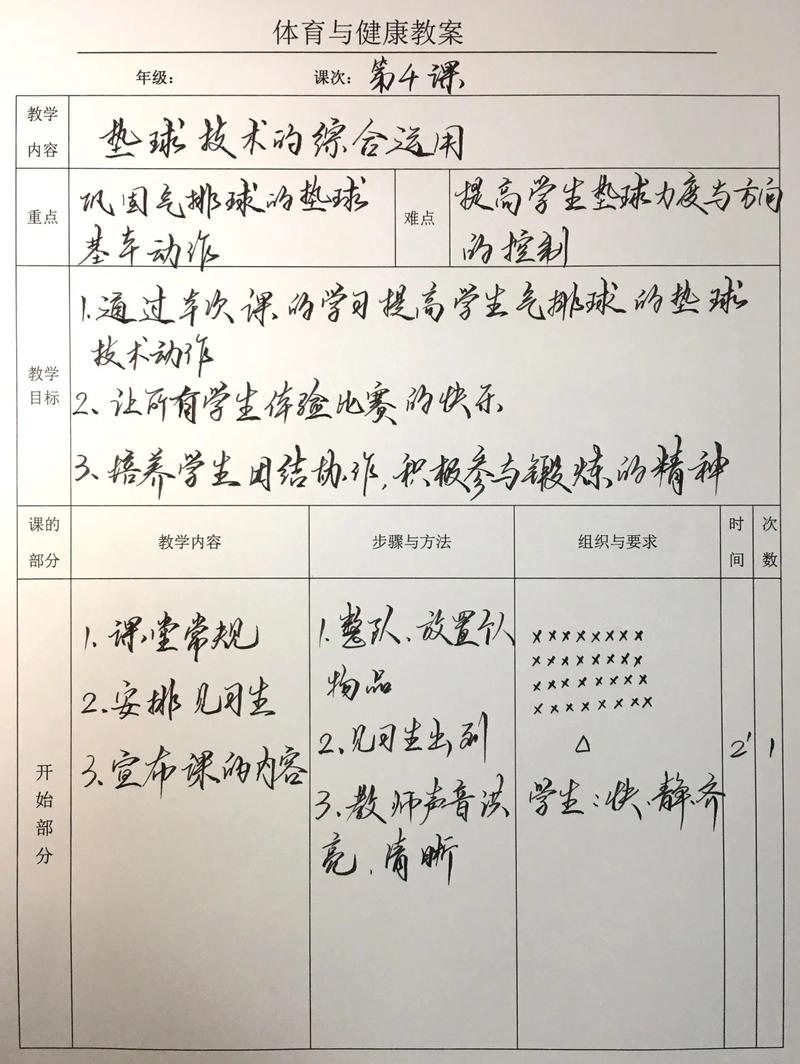 体育与健康教案
年级： 课次： 第4课
教学内容 垫球技术的综合运用
重点 巩固气排球的垫球
基本动作
难点 提高学生垫球力度与方向
的控制
教学目标
1.通过本次课的学习提高学生气排球的垫球
技术动作
2、让所有学生体验比赛的快乐
3、培养学生团结协作，积极参与锻炼的精神
课的部分 教学内容 步骤与方法 组织与要求 时间 次数
开始部分
1、课堂常规
2、安排见习生
3、宣布课的内容
1、整队、放置个人
物品
2、见习生出列
3、教师声音洪
亮、清晰
x x x x x x x x
x x x x x x x x
x x x x x x x x
x x x x x x x x
△
学生：快、静、齐
2' 1